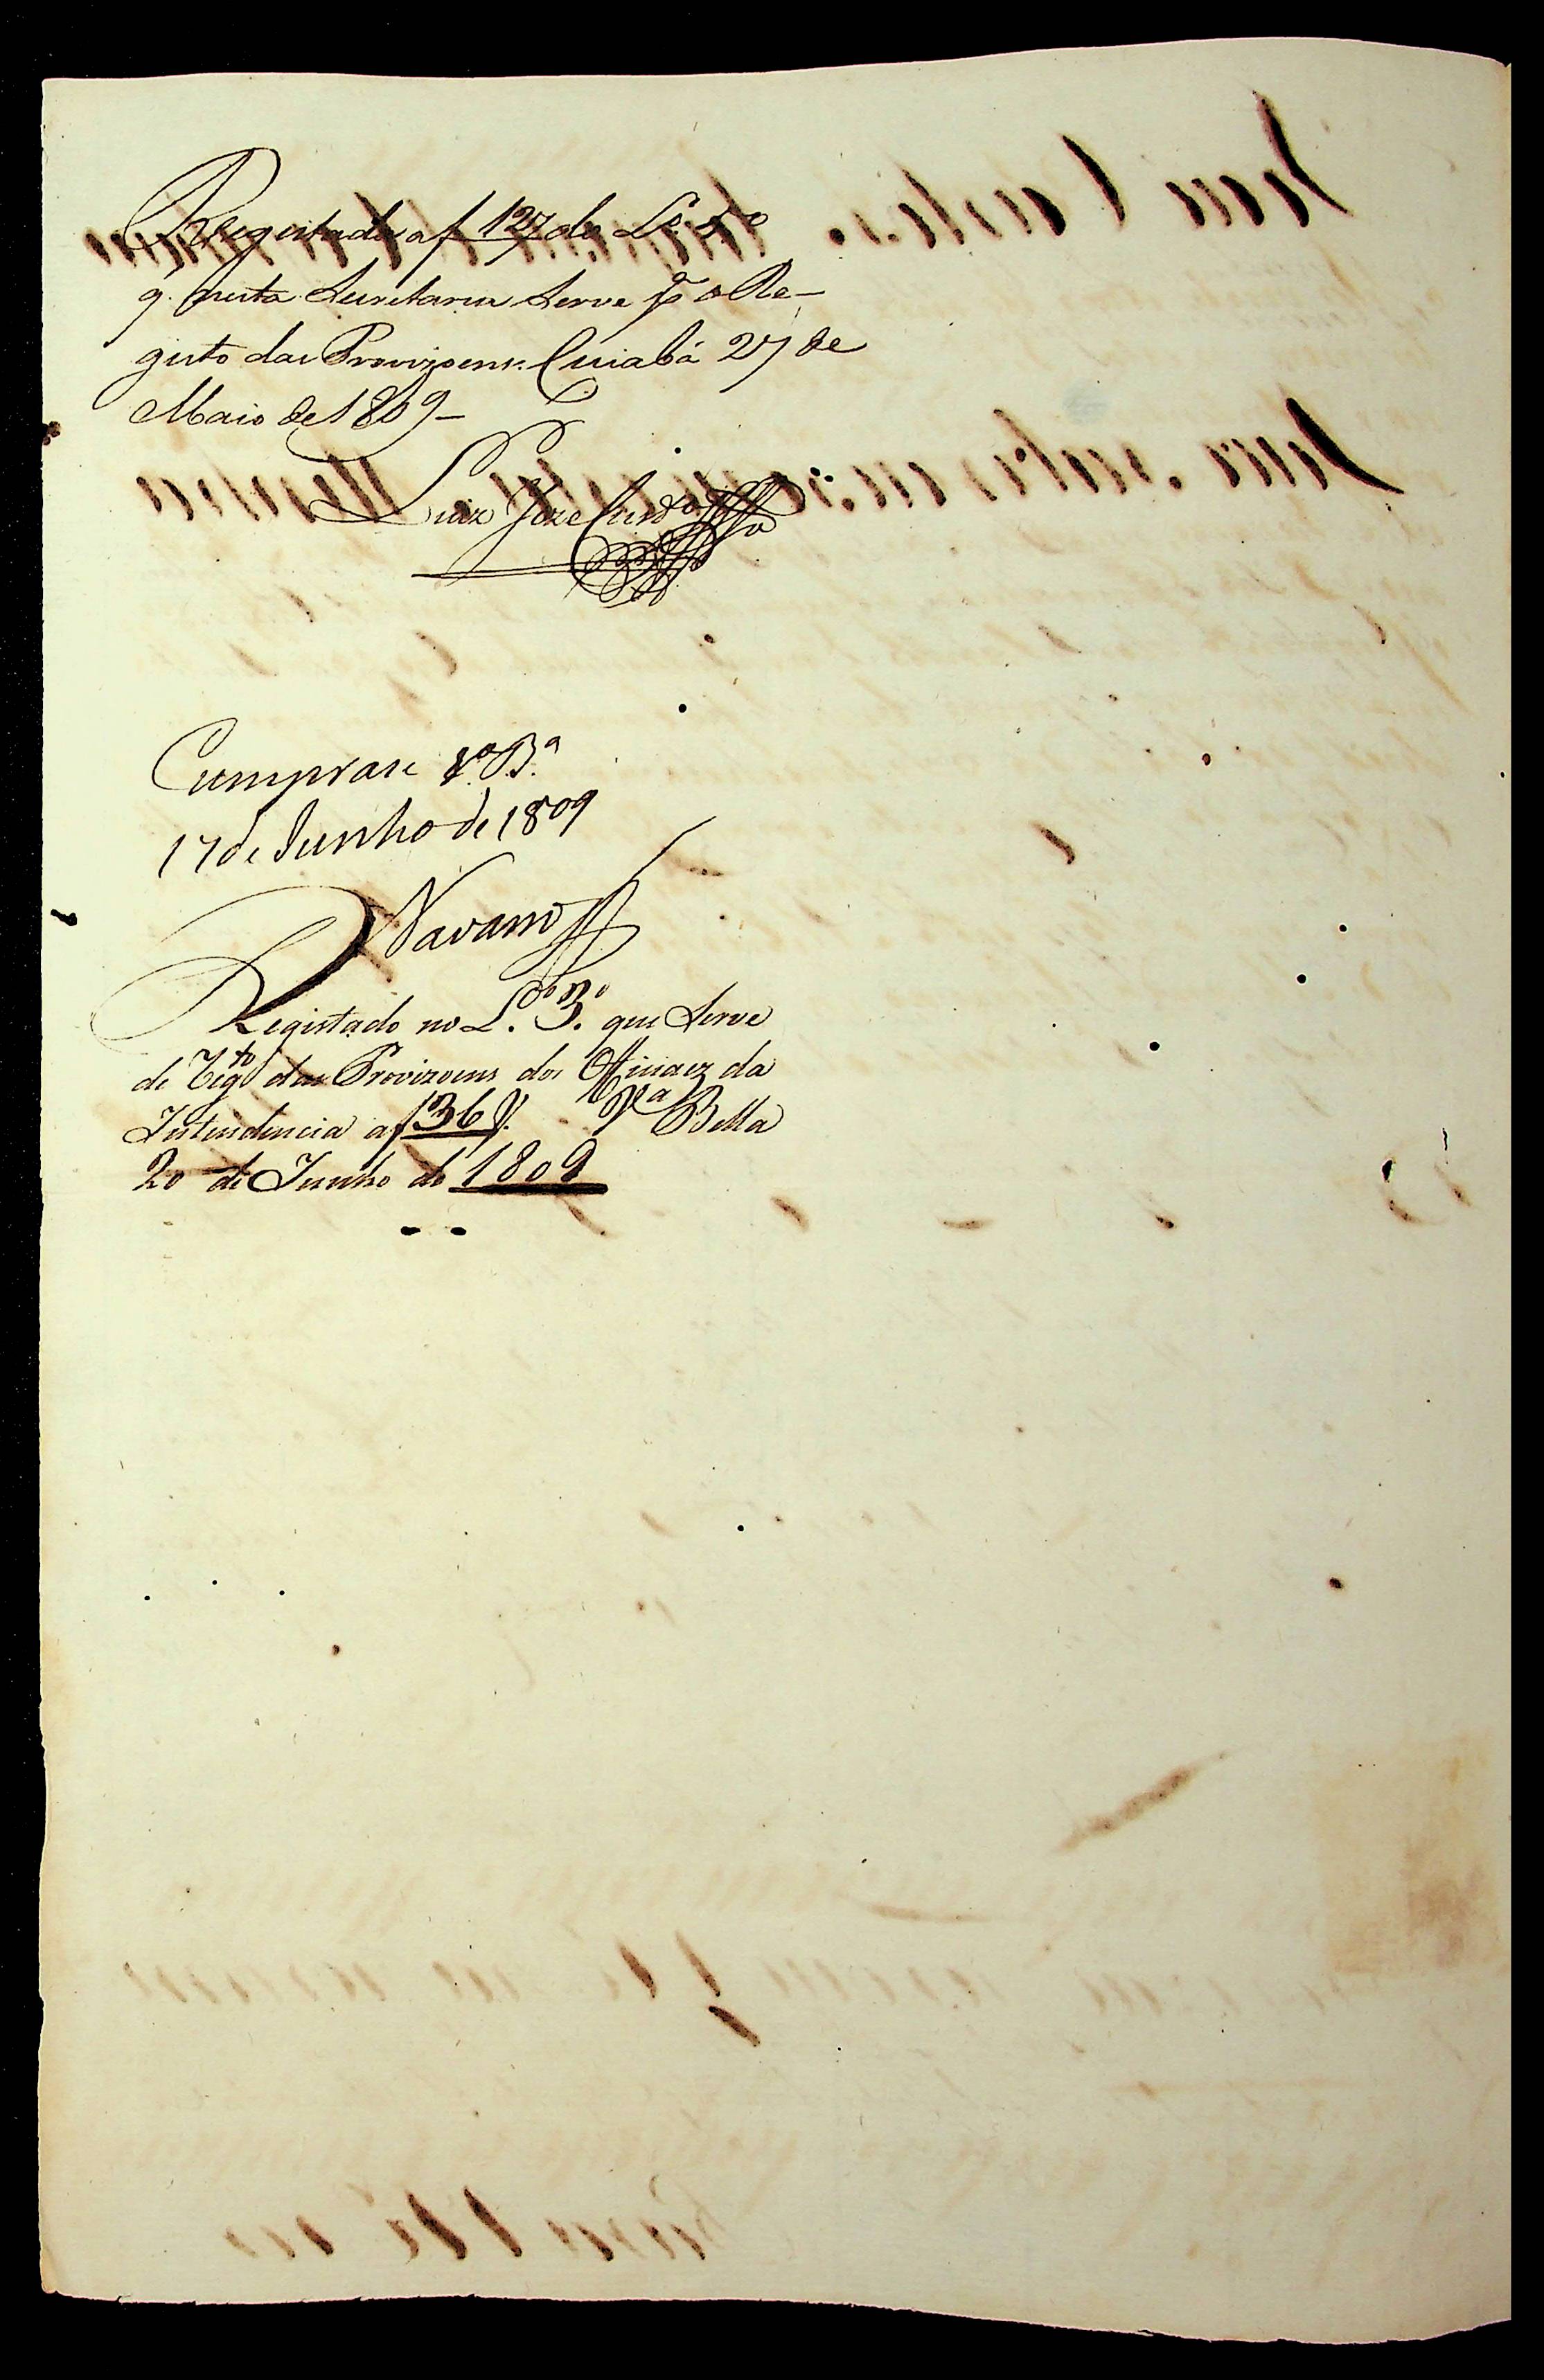 Registada a f 127 do Lº.
q. nesta Secretaria Serve pª o Re-
gisto das Provizoens. Cuiabá 27 de
Maio de 1809-
Luiz Joze
Cumprase Vª. Bª.
17 de Junho de 1809
Navarro
Registado no Lº. 3º. que Serve
de Regto das Provizoens dos Officiaez da
Intendencia a f 36 V. Vª Bella
20 de Junho de 1809